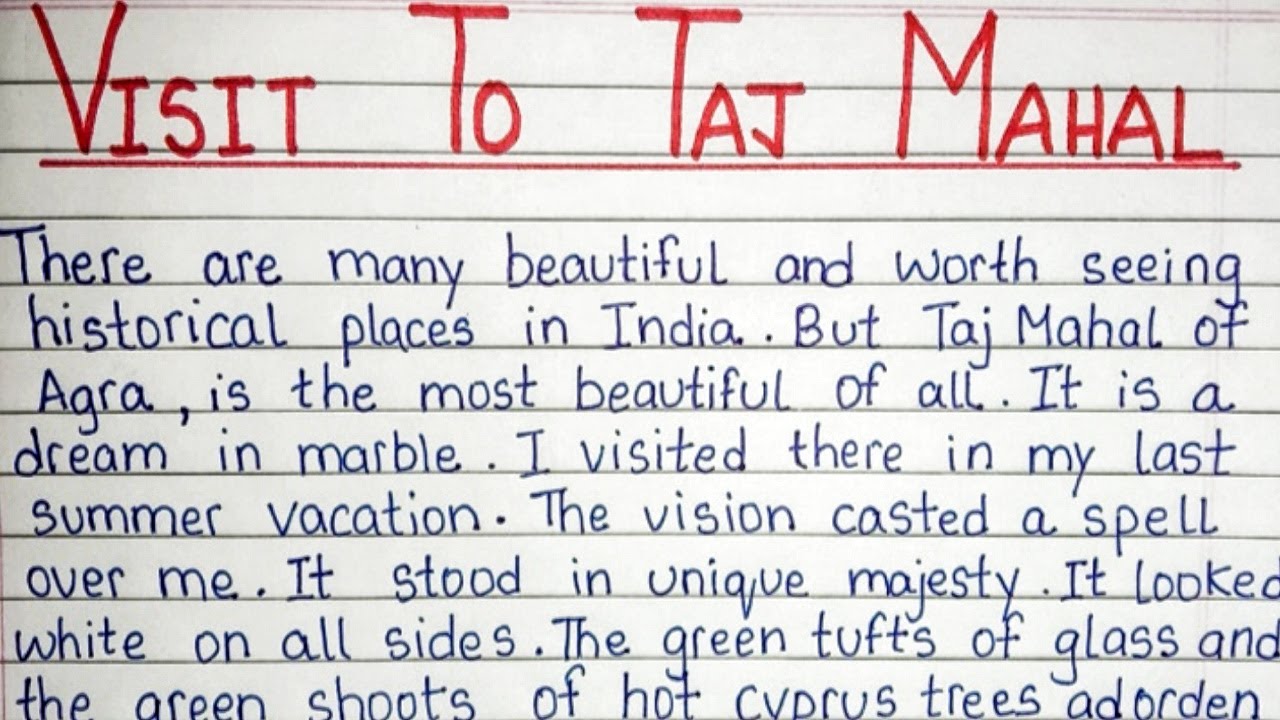 VISIT TO TAJ MAHAL
There are many beautiful and worth seeing
historical places in India. But Taj Mahal of
Agra, is the most beautiful of all. It is a
dream in marble. I visited there in my last
summer vacation. The vision casted a spell
over me. It stood in unique majesty. It looked
white on all sides. The green tufts of glass and
the green shoots of hot cyprus trees adorden